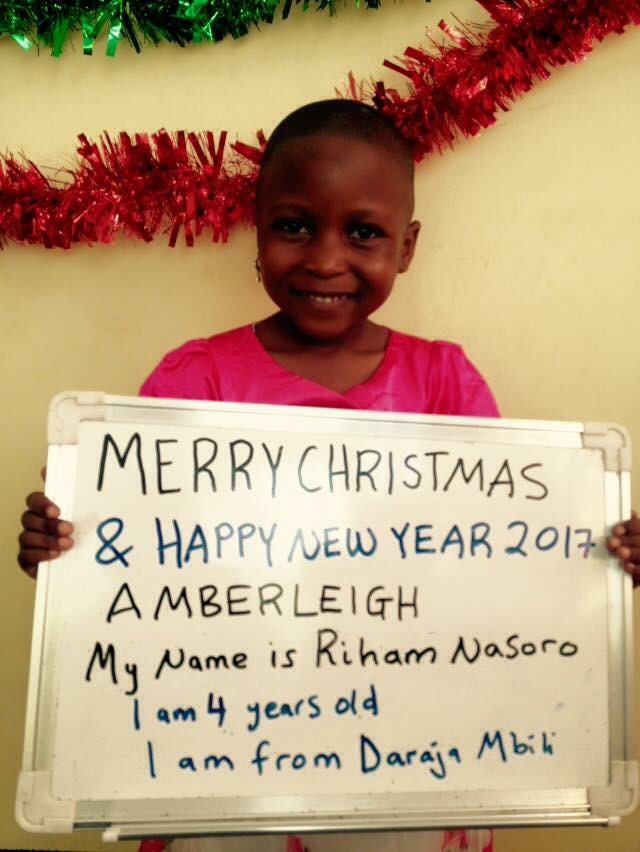 MERRY CHRISTMAS
& HAPPY NEW YEAR 2017
AMBERLEIGH
My Name is Riham Nasoro
I am 4 years old
I am from Daraja Mbili